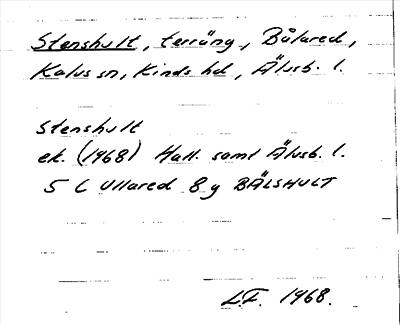 Stenshult, terräng, Bålared,
Kalvs sn, Kinds hd, Älvsb. l.
Stenshult
ek. (1968) Hall. samt Älvsb. l.
5 C Ullared 8 g BÄLSHULT
L.F. 1968.